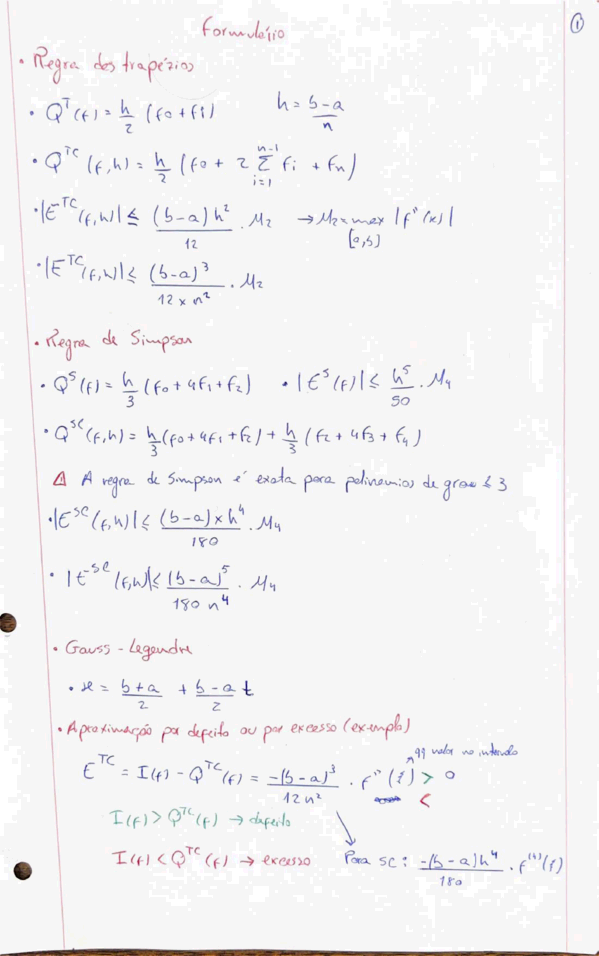 Formulário
①
• Regra dos trapézios
• Q^T(f) = h/2 (f0 + f1)    h = b-a/n
• Q^TC (f,h) = h/2 (f0 + 2 Σ_{i=1}^{n-1} fi + fn)
• |E^TC (f,h)| ≤ (b-a)h²/12 . M2 → M2 = max_[a,b] |f''(x)|
• |E^TC (f,h)| ≤ (b-a)³/12 × n² . M2
• Regra de Simpson
• Q^S(f) = h/3 (f0 + 4f1 + f2)    • |E^S(f)| ≤ h⁵/90 . M4
• Q^SC (f,h) = h/3 (f0 + 4f1 + f2) + h/3 (f2 + 4f3 + f4)
⚠ A regra de Simpson é exata para polinomios de grau ≤ 3
• |E^SC (f,h)| ≤ (b-a) × h⁴/180 . M4
• |E^SC (f,h)| ≤ (b-a)⁵/180 n⁴ . M4
• Gauss - Legendre
• x = b+a/2 + b-a/2 t
• Aproximação por defeito ou por excesso (exemplo)
qq valor no intervalo
E^TC = I(f) - Q^TC(f) = -(b-a)³/12n² . f''(ξ) > 0
<
I(f) > Q^TC(f) → defeito
I(f) < Q^TC(f) → excesso    Para SC: -(b-a)h⁴/180 . f^(4)(ξ)